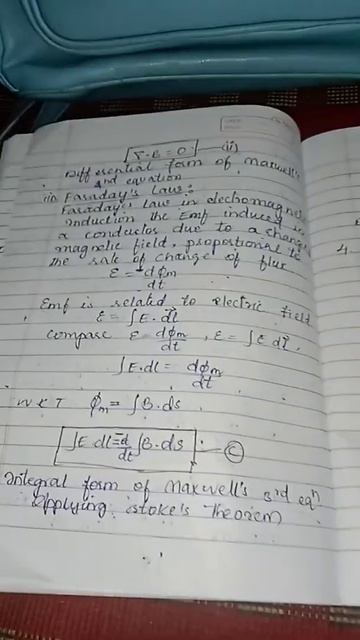 ∇·B = 0 — (ii)
Differential form of maxwell's
2nd equation
(iii) Faraday's Law:
Faraday's Law in electromagnetic
induction the Emf induced in
a conductor due to a change
magnetic field, proportional to
the rate of change of flux
ε = -dφm/dt
Emf is related to electric field
ε = ∫E·dl
compare ε = dφm/dt, ε = ∫E dl
∫E·dl = dφm/dt
W K T φm = ∫B·ds
∫E dl = -d/dt ∫B·ds — (C)
Integral form of Maxwell's 3rd eqn
Applying stoke's Theorem